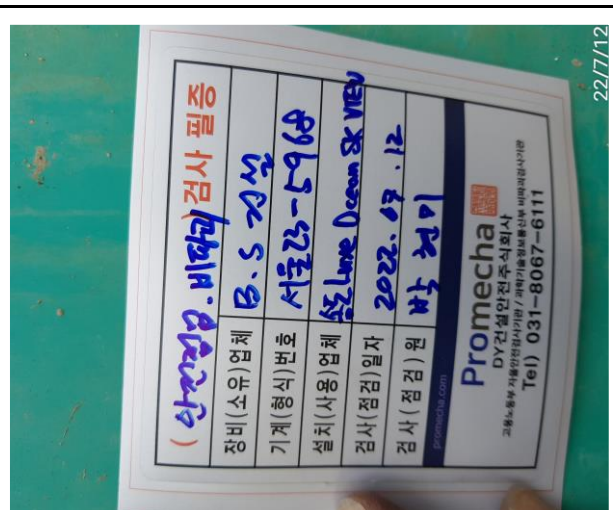 (안전점검.비파괴)검사 필증
장비(소유)업체 B.S 건설
기계(형식)번호 서울23-5968
설치(사용)업체 송도 Lume Ocean SK VIEW
검사(점검)일자 2022.07.12
검사(점검)원 박현미
promecha.com
Promecha
DY건설안전주식회사
고용노동부 자율안전검사기관 / 과학기술정보통신부 비파괴검사기관
Tel) 031-8067-6111
22/7/12